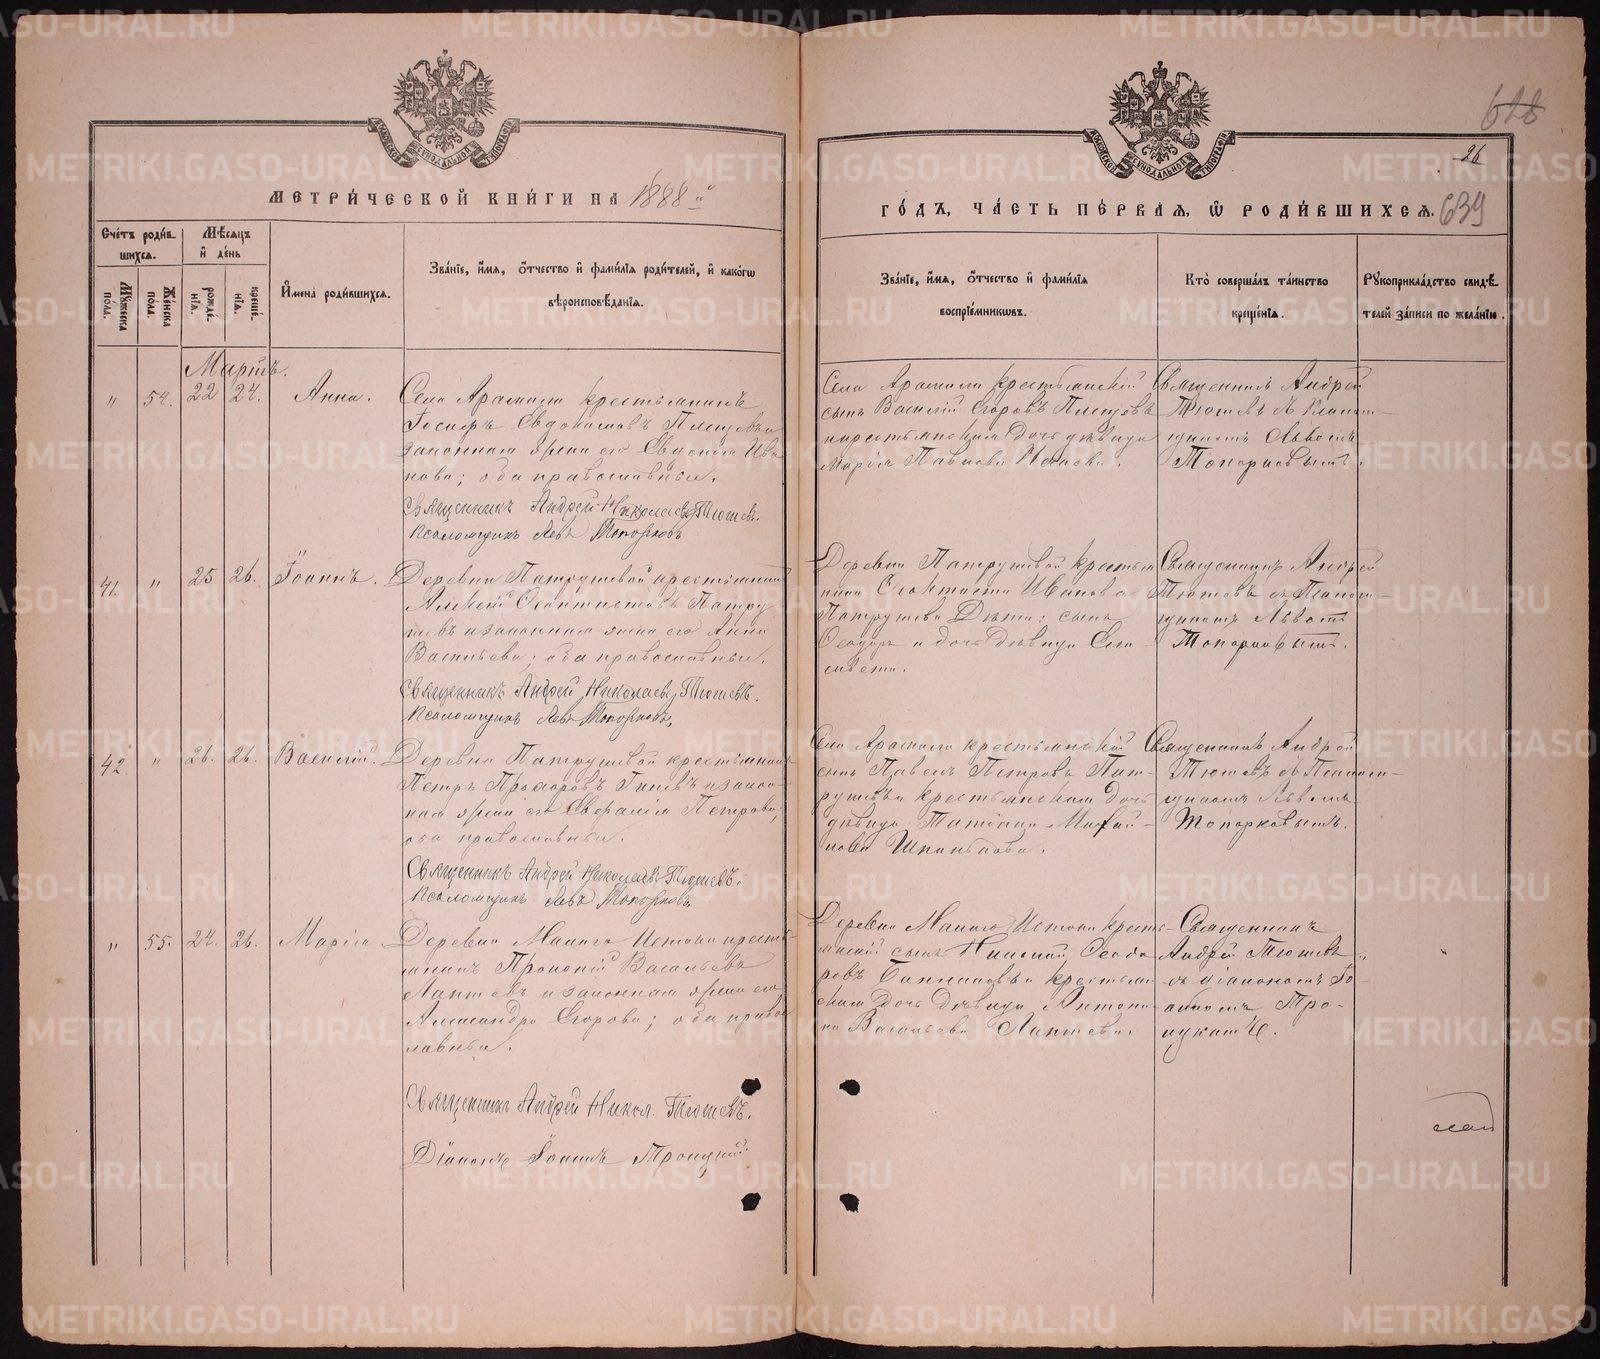 628
26
МЕТРИ́ЧЕСКОЙ КНИ́ГИ НА 1888
ГО́ДЪ, ЧА́СТЬ ПЕ́РВАЯ, Ѡ РОДИ́ВШИХСЯ.
639
Сче́тъ роди́в-
шихся.
Мѣ́сяцъ
и҆ де́нь
И҆мена̀ роди́вшихся.
Зва́нїе, и҆́мя, ѻ҆́тчество и҆ фами́лїя роди́телей, и҆ како́гѡ
вѣроисповѣ́данїя.
Мꙋжеска по́ла.
Же́нска по́ла.
рожде́нїя.
креще́нїя.
Зва́нїе, и҆́мя, ѻ҆́тчество и҆ фами́лїя
воспрїе́мникѡвъ.
Кто̀ соверша́лъ та́инство
креще́нїя.
Рꙋкоприкла́дство свидѣ́-
телей за́писи по жела́нїю.
Мартъ.
" 54. 22 24. Анна.
Села Арамили крестьянинъ
Іосифъ Евдокимовъ Плещевъ и
законная жена его Евдокія Ива
нова; оба православные.
Священникъ Андрей Николаевъ Тюшевъ.
Псаломщикъ Левъ Топорковъ
Села Арамили крестьянскій
сынъ Василій Егоровъ
и крестьянская дочь дѣвица
Марія Павлова
Священникъ Андрей
Тюшевъ съ Псалом-
щикомъ Львомъ
Топорковымъ.
41. " 25 26. Іоаннъ.
Деревни Патрушевой крестьянинъ
Алексій Ѳеоктистовъ Патру
шевъ и законная жена его Анна
Васильева; оба православные.
Священникъ Андрей Николаевъ Тюшевъ.
Псаломщикъ Левъ Топорковъ,
Деревни Патрушевой крестья
нина Ѳеоктиста Иванова
Патрушева Дѣти: сынъ
Ѳеодоръ и дочь дѣвица Ели
савета.
Священникъ Андрей
Тюшевъ съ Псалом-
щикомъ Львомъ
Топорковымъ.
42. " 26. 26. Василій.
Деревни Патрушевой крестьянинъ
Петръ Прохоровъ и закон-
ная жена его Евфалія Петрова;
оба православные.
Священникъ Андрей Николаевъ Тюшевъ.
Псаломщикъ Левъ Топорковъ
Села Арамили крестьянскій
сынъ Павелъ Петровъ Пат-
рушевъ и крестьянская дочь
дѣвица Татіана Михай-
лова
Священникъ Андрей
Тюшевъ съ Псалом-
щикомъ Львомъ
Топорковымъ.
" 55. 24. 26. Марія
Деревни Малаго Истока кресть
янинъ Прокопій Васильевъ
Лаптевъ и законная жена его
Александра Егорова; оба право
лавные.
Священникъ Андрей Никол. Тюшевъ.
Діаконъ Іоаннъ Троицкій
Деревни Малаго Истока кресть-
янскій сынъ Николай Ѳеодо
ровъ и крестьян-
ская дочь дѣвица Антони
на Васильева Лаптева.
Священникъ
Андрей Тюшевъ
съ діакономъ Іо-
анномъ Тро-
ицкимъ.
METRIKI.GASO-URAL.RU